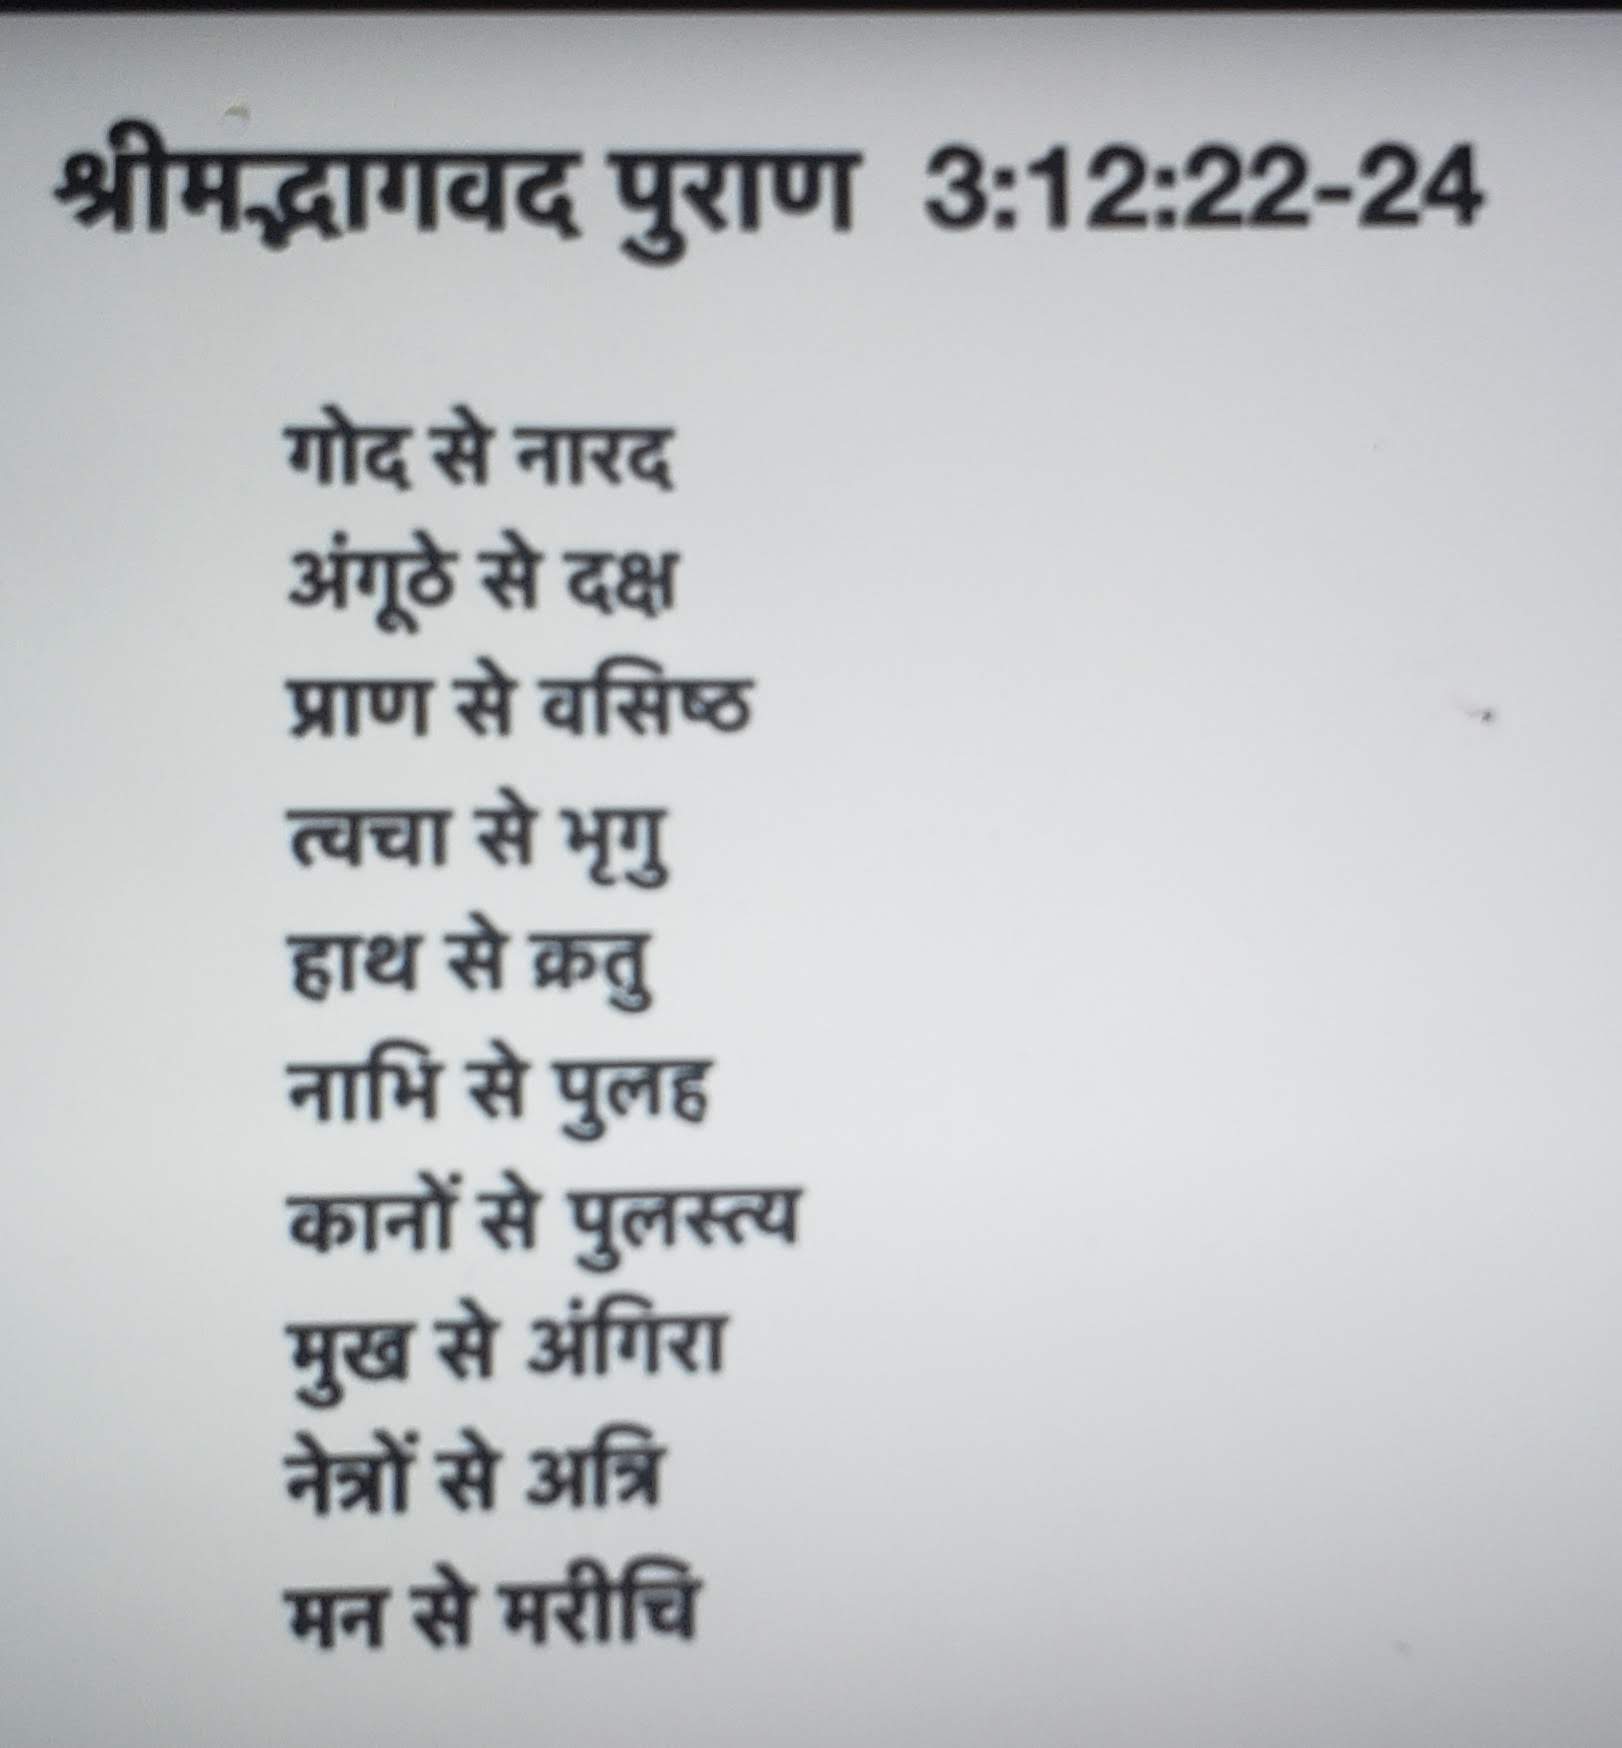 श्रीमद्भागवद पुराण 3:12:22-24
गोद से नारद
अंगूठे से दक्ष
प्राण से वसिष्ठ
त्वचा से भृगु
हाथ से क्रतु
नाभि से पुलह
कानों से पुलस्त्य
मुख से अंगिरा
नेत्रों से अत्रि
मन से मरीचि